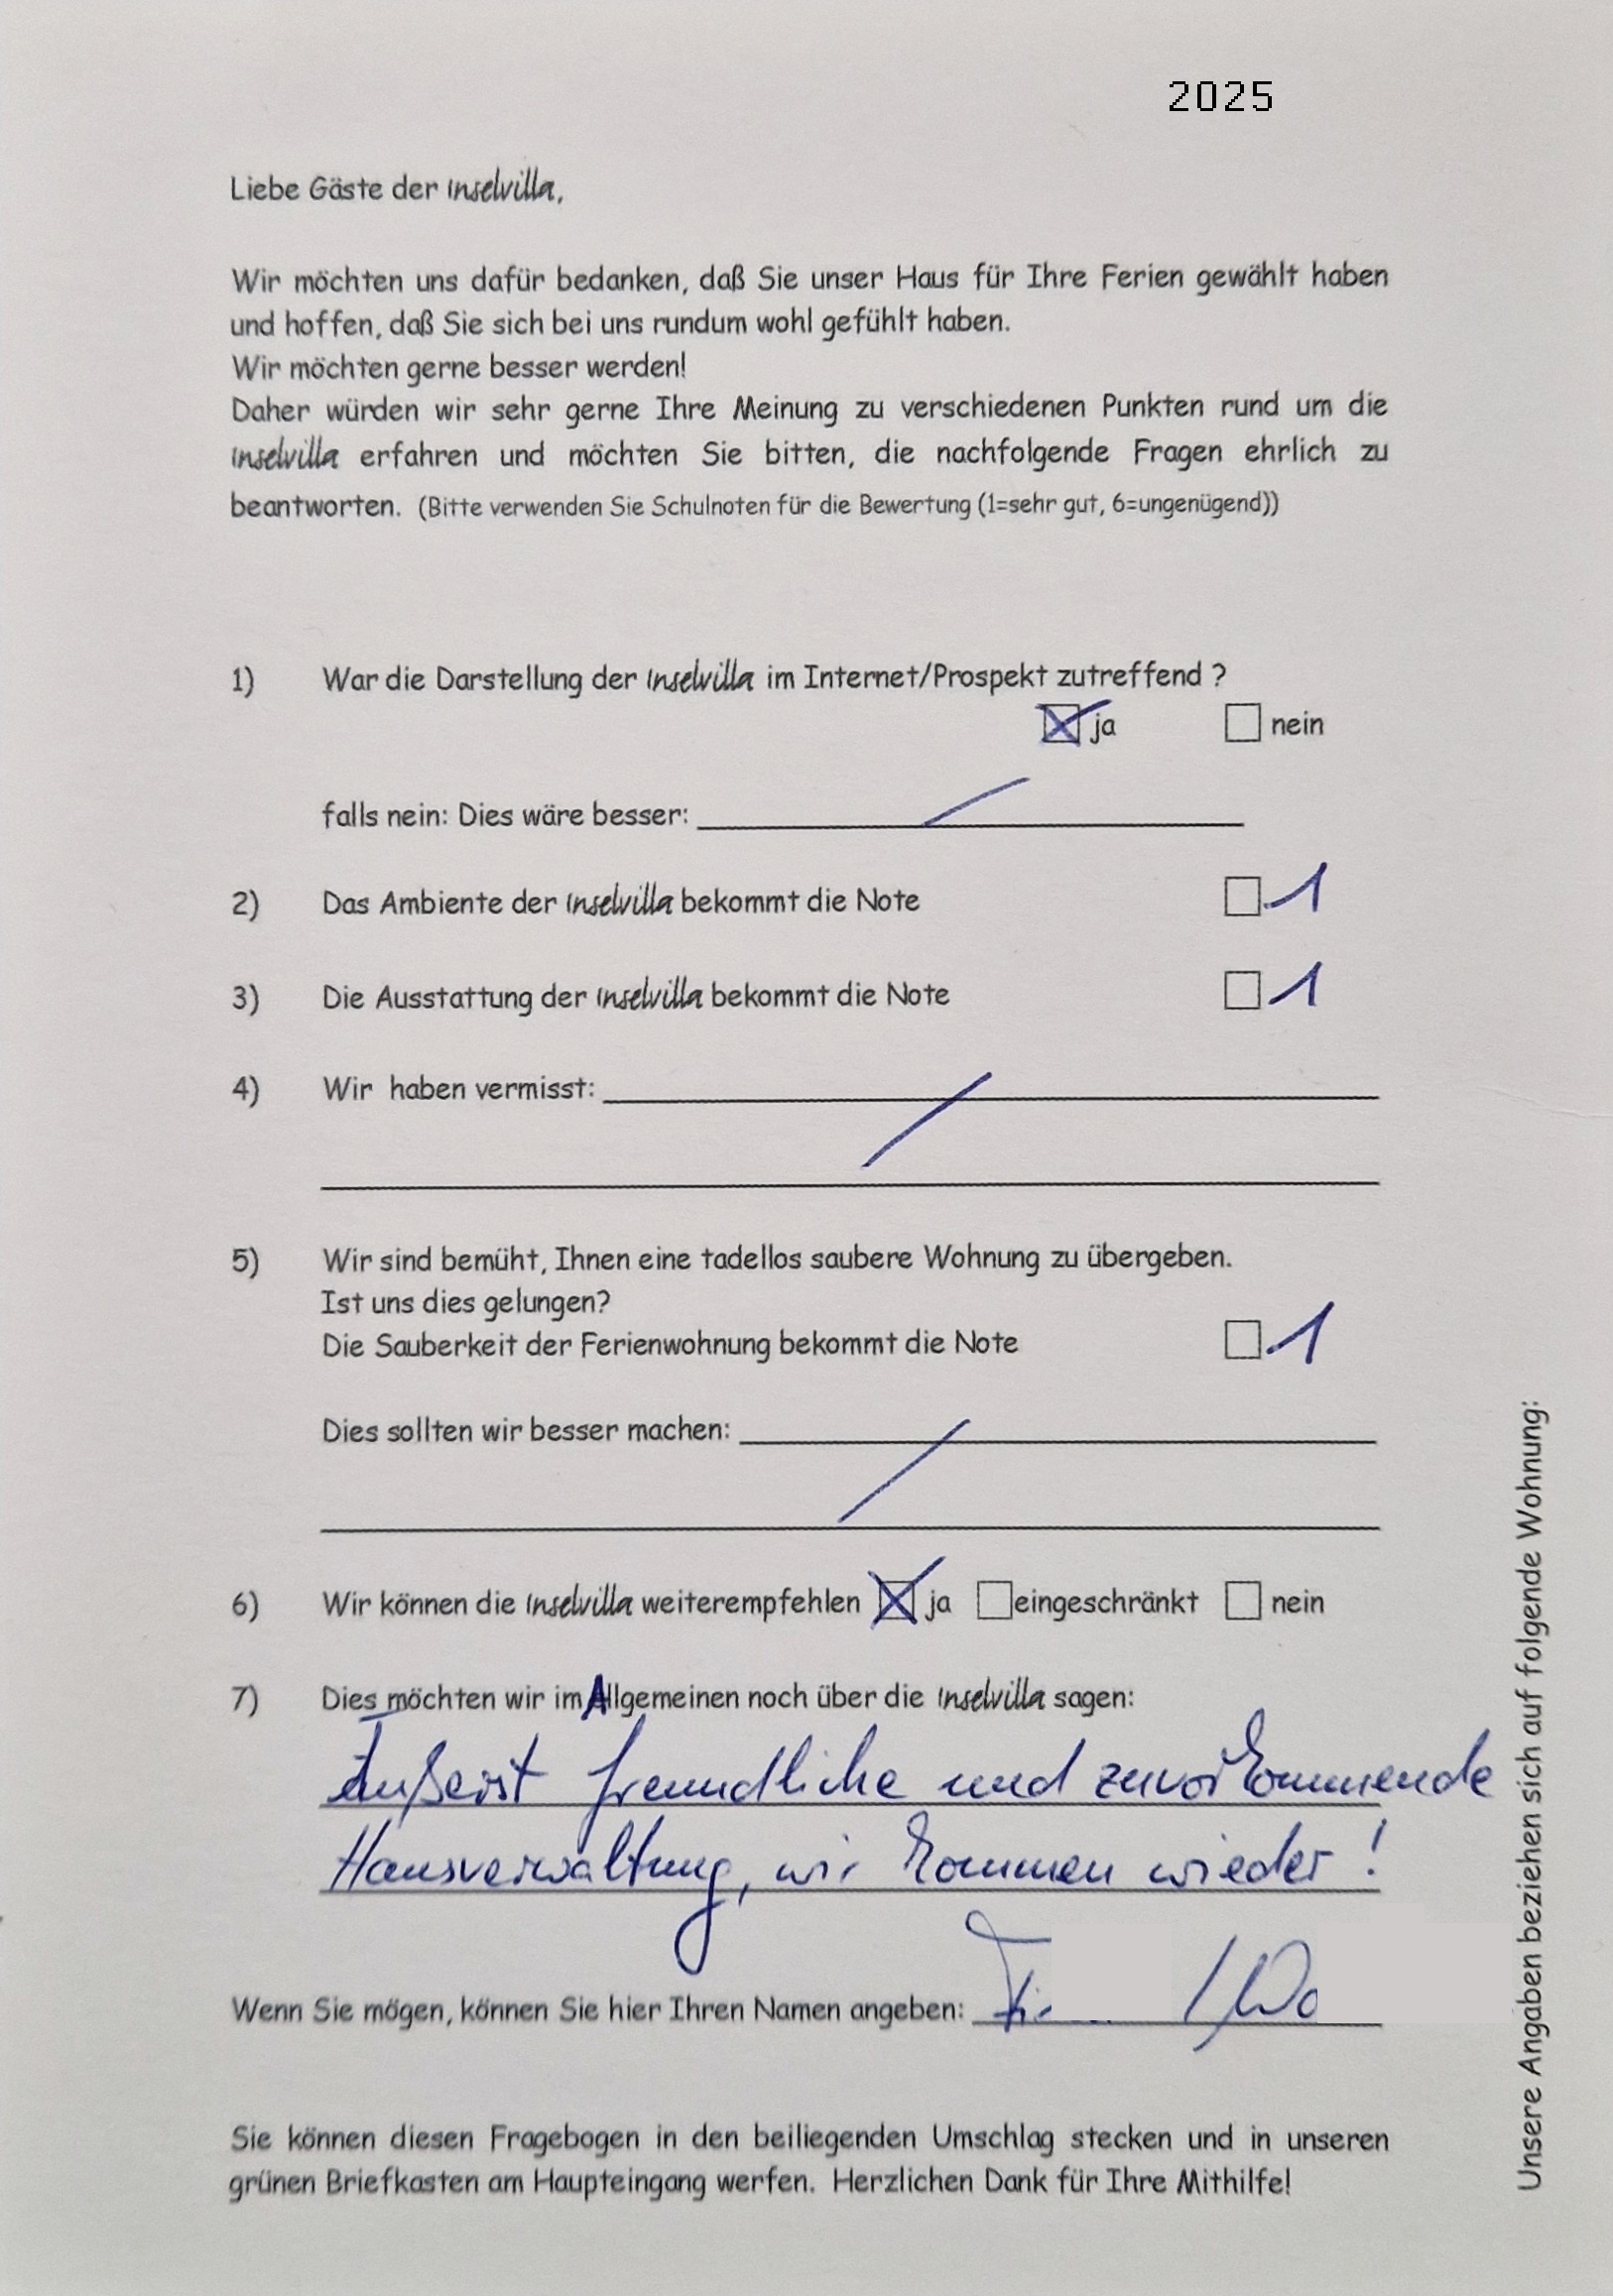 2025
Liebe Gäste der Inselvilla,
Wir möchten uns dafür bedanken, daß Sie unser Haus für Ihre Ferien gewählt haben
und hoffen, daß Sie sich bei uns rundum wohl gefühlt haben.
Wir möchten gerne besser werden!
Daher würden wir sehr gerne Ihre Meinung zu verschiedenen Punkten rund um die
Inselvilla erfahren und möchten Sie bitten, die nachfolgende Fragen ehrlich zu
beantworten. (Bitte verwenden Sie Schulnoten für die Bewertung (1=sehr gut, 6=ungenügend))
1) War die Darstellung der Inselvilla im Internet/Prospekt zutreffend ?
☒ ja ☐ nein
falls nein: Dies wäre besser: /
2) Das Ambiente der Inselvilla bekommt die Note ☐ 1
3) Die Ausstattung der Inselvilla bekommt die Note ☐ 1
4) Wir haben vermisst: /
5) Wir sind bemüht, Ihnen eine tadellos saubere Wohnung zu übergeben.
Ist uns dies gelungen?
Die Sauberkeit der Ferienwohnung bekommt die Note ☐ 1
Dies sollten wir besser machen: /
6) Wir können die Inselvilla weiterempfehlen ☒ ja ☐ eingeschränkt ☐ nein
7) Dies möchten wir im Allgemeinen noch über die Inselvilla sagen:
Äußerst freundliche und zuvorkommende
Hausverwaltung, wir kommen wieder!
Wenn Sie mögen, können Sie hier Ihren Namen angeben:
Sie können diesen Fragebogen in den beiliegenden Umschlag stecken und in unseren
grünen Briefkasten am Haupteingang werfen. Herzlichen Dank für Ihre Mithilfe!
Unsere Angaben beziehen sich auf folgende Wohnung: